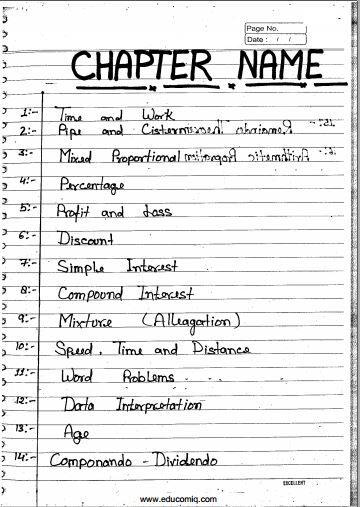 Page No.
Date : / /
CHAPTER NAME
1:- Time and Work
2:- Pipe and Cistern
3:- Mixed Proportional
4:- Percentage
5:- Profit and Loss
6:- Discount
7:- Simple Interest
8:- Compound Interest
9:- Mixture (Alleagation)
10:- Speed, Time and Distance
11:- Word Problems
12:- Data Interpretation
13:- Age
14:- Componando - Dividendo
EXCELLENT
www.educomiq.com